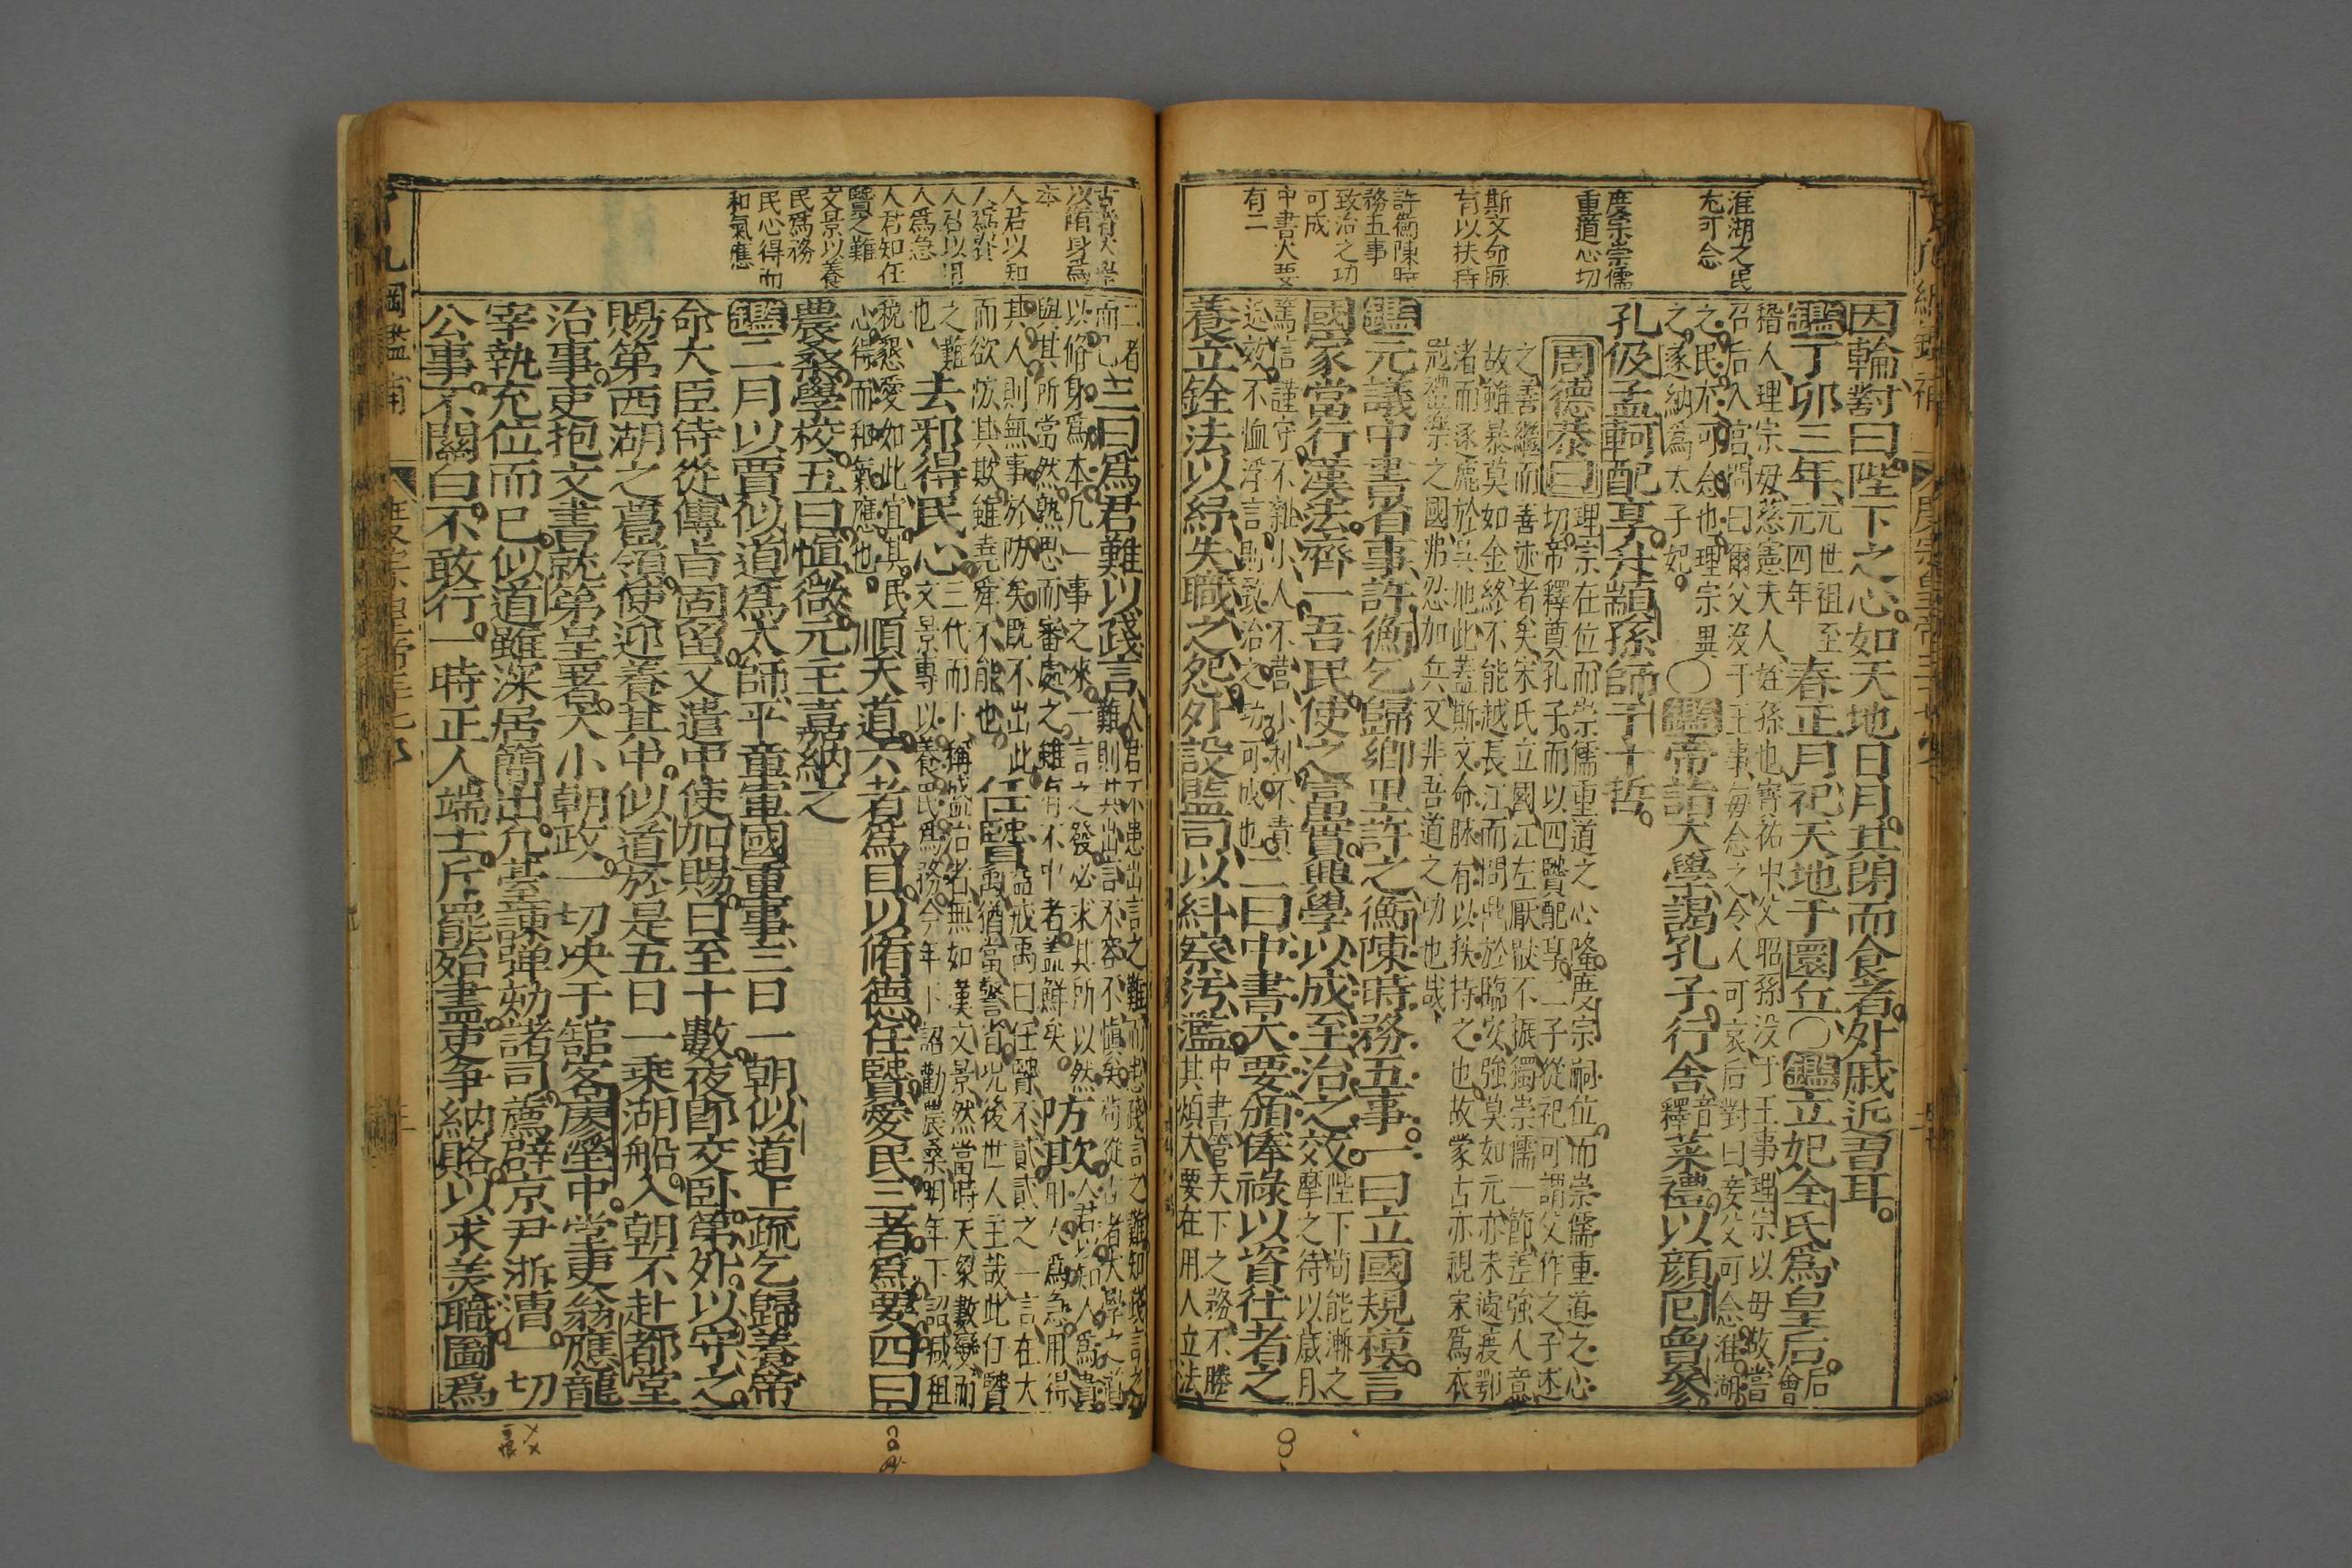 淮湖之民
尤可念
度宗崇儒
重道心切
斯文命脉
有以扶持
許衡陳時
務五事
致治之功
可成
中書大要
有二
因輪對曰陛下之心如天地日月其閉而食者外戚近習耳
鑑丁卯三年元世祖至元四年春正月祀天地于圜丘○鑑立妃全氏爲皇后后會
稽人理宗母慈憲夫人姪孫也寶祐中父昭孫没于王事理宗以母故嘗
召后入宫問曰爾父没于王事每念之令人可哀后對曰妾父可念淮湖
之民尤可念也理宗異
之遂納爲太子妃○鑑帝詣大學謁孔子行舍音釋菜禮以顔囘曾參
孔伋孟軻配享升顓孫師于十哲
周德恭曰理宗在位而崇儒重道之心隆度宗嗣位而崇儒重道之心
切帝釋奠孔子而以四賢配享二子從祀可謂父作之子述
之善繼而善述者矣宋氏立國江左厭狀不振獨崇儒一節差強人意
故雖暴莫如金終不能越長江而問鼎於臨安強莫如元亦未遽渡鄂
渚而逐鹿於吳地此蓋斯文命脉有以扶持之也故蒙古亦視宋爲衣
冠禮樂之國弗忍加兵又非吾道之功也哉
鑑元議中書省事許衡乞歸鄉里許之衡陳時務五事一曰立國規模言
國家當行漢法齊一吾民使之富實興學以成至治之效陛下尚能漸之
摩之待以歲月
篤信謹守不雜小人不營小利不責
近效不恤浮言則致治之功可成也二曰中書大要頒俸祿以資仕者之
養立銓法以紓失職之怨外設監司以糾察污濫中書管天下之務不勝
其煩大要在用人立法
古者大學
以脩身爲
本
人君以知
人爲貴
人君以用
人爲急
人君知任
賢之難
文景以養
民爲務
民心得而
和氣應
二者
而已三曰爲君難以踐言人君不患出言之難而患踐言之難知踐言之
難則其出言不容不愼矣苟從古者大學之道
以脩身爲本凡一事之來一言之發必求其所以然
與其所當然熟思而審處之雖有不中者蓋鮮矣防欺人君以知人爲貴
用人爲急用得
其人則無事於防矣既不出此
而欲防其欺雖堯舜不能也任賢益戒禹曰任賢不貳貳之一言在大
禹猶當警省况後世人主哉此任賢
之難
也去邪得民心三代而下稱盛治者無如漢文景然當時天象數變而
文景專以養民爲務今年下詔勸農桑明年下詔減租
稅懇愛如此宜其民
心得而和氣應也順天道六者爲目以脩德任賢愛民三者爲要四曰
農桑學校五曰愼微元主嘉納之
鑑二月以賈似道爲太師平章軍國重事三日一朝似道上疏乞歸養帝
命大臣侍從傳旨固留又遣中使加賜日至十數夜即交卧第外以守之
賜第西湖之葛嶺使迎養其中似道於是五日一乘湖船入朝不赴都堂
治事吏抱文書就第呈署大小朝政一切决于舘客廖瑩中堂吏翁應龍
宰執充位而已似道雖深居簡出凢臺諫彈劾諸司薦辟京尹浙漕一切
公事不關白不敢行一時正人端士斥罷殆盡吏争納賂以求美職圖爲